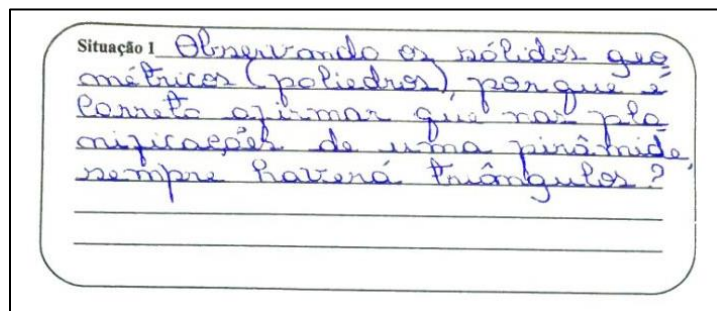 Situação 1 Observando os sólidos geo
métricos (poliedros), porque é
correto afirmar que nas pla
nificações de uma pirâmide,
sempre haverá triângulos?